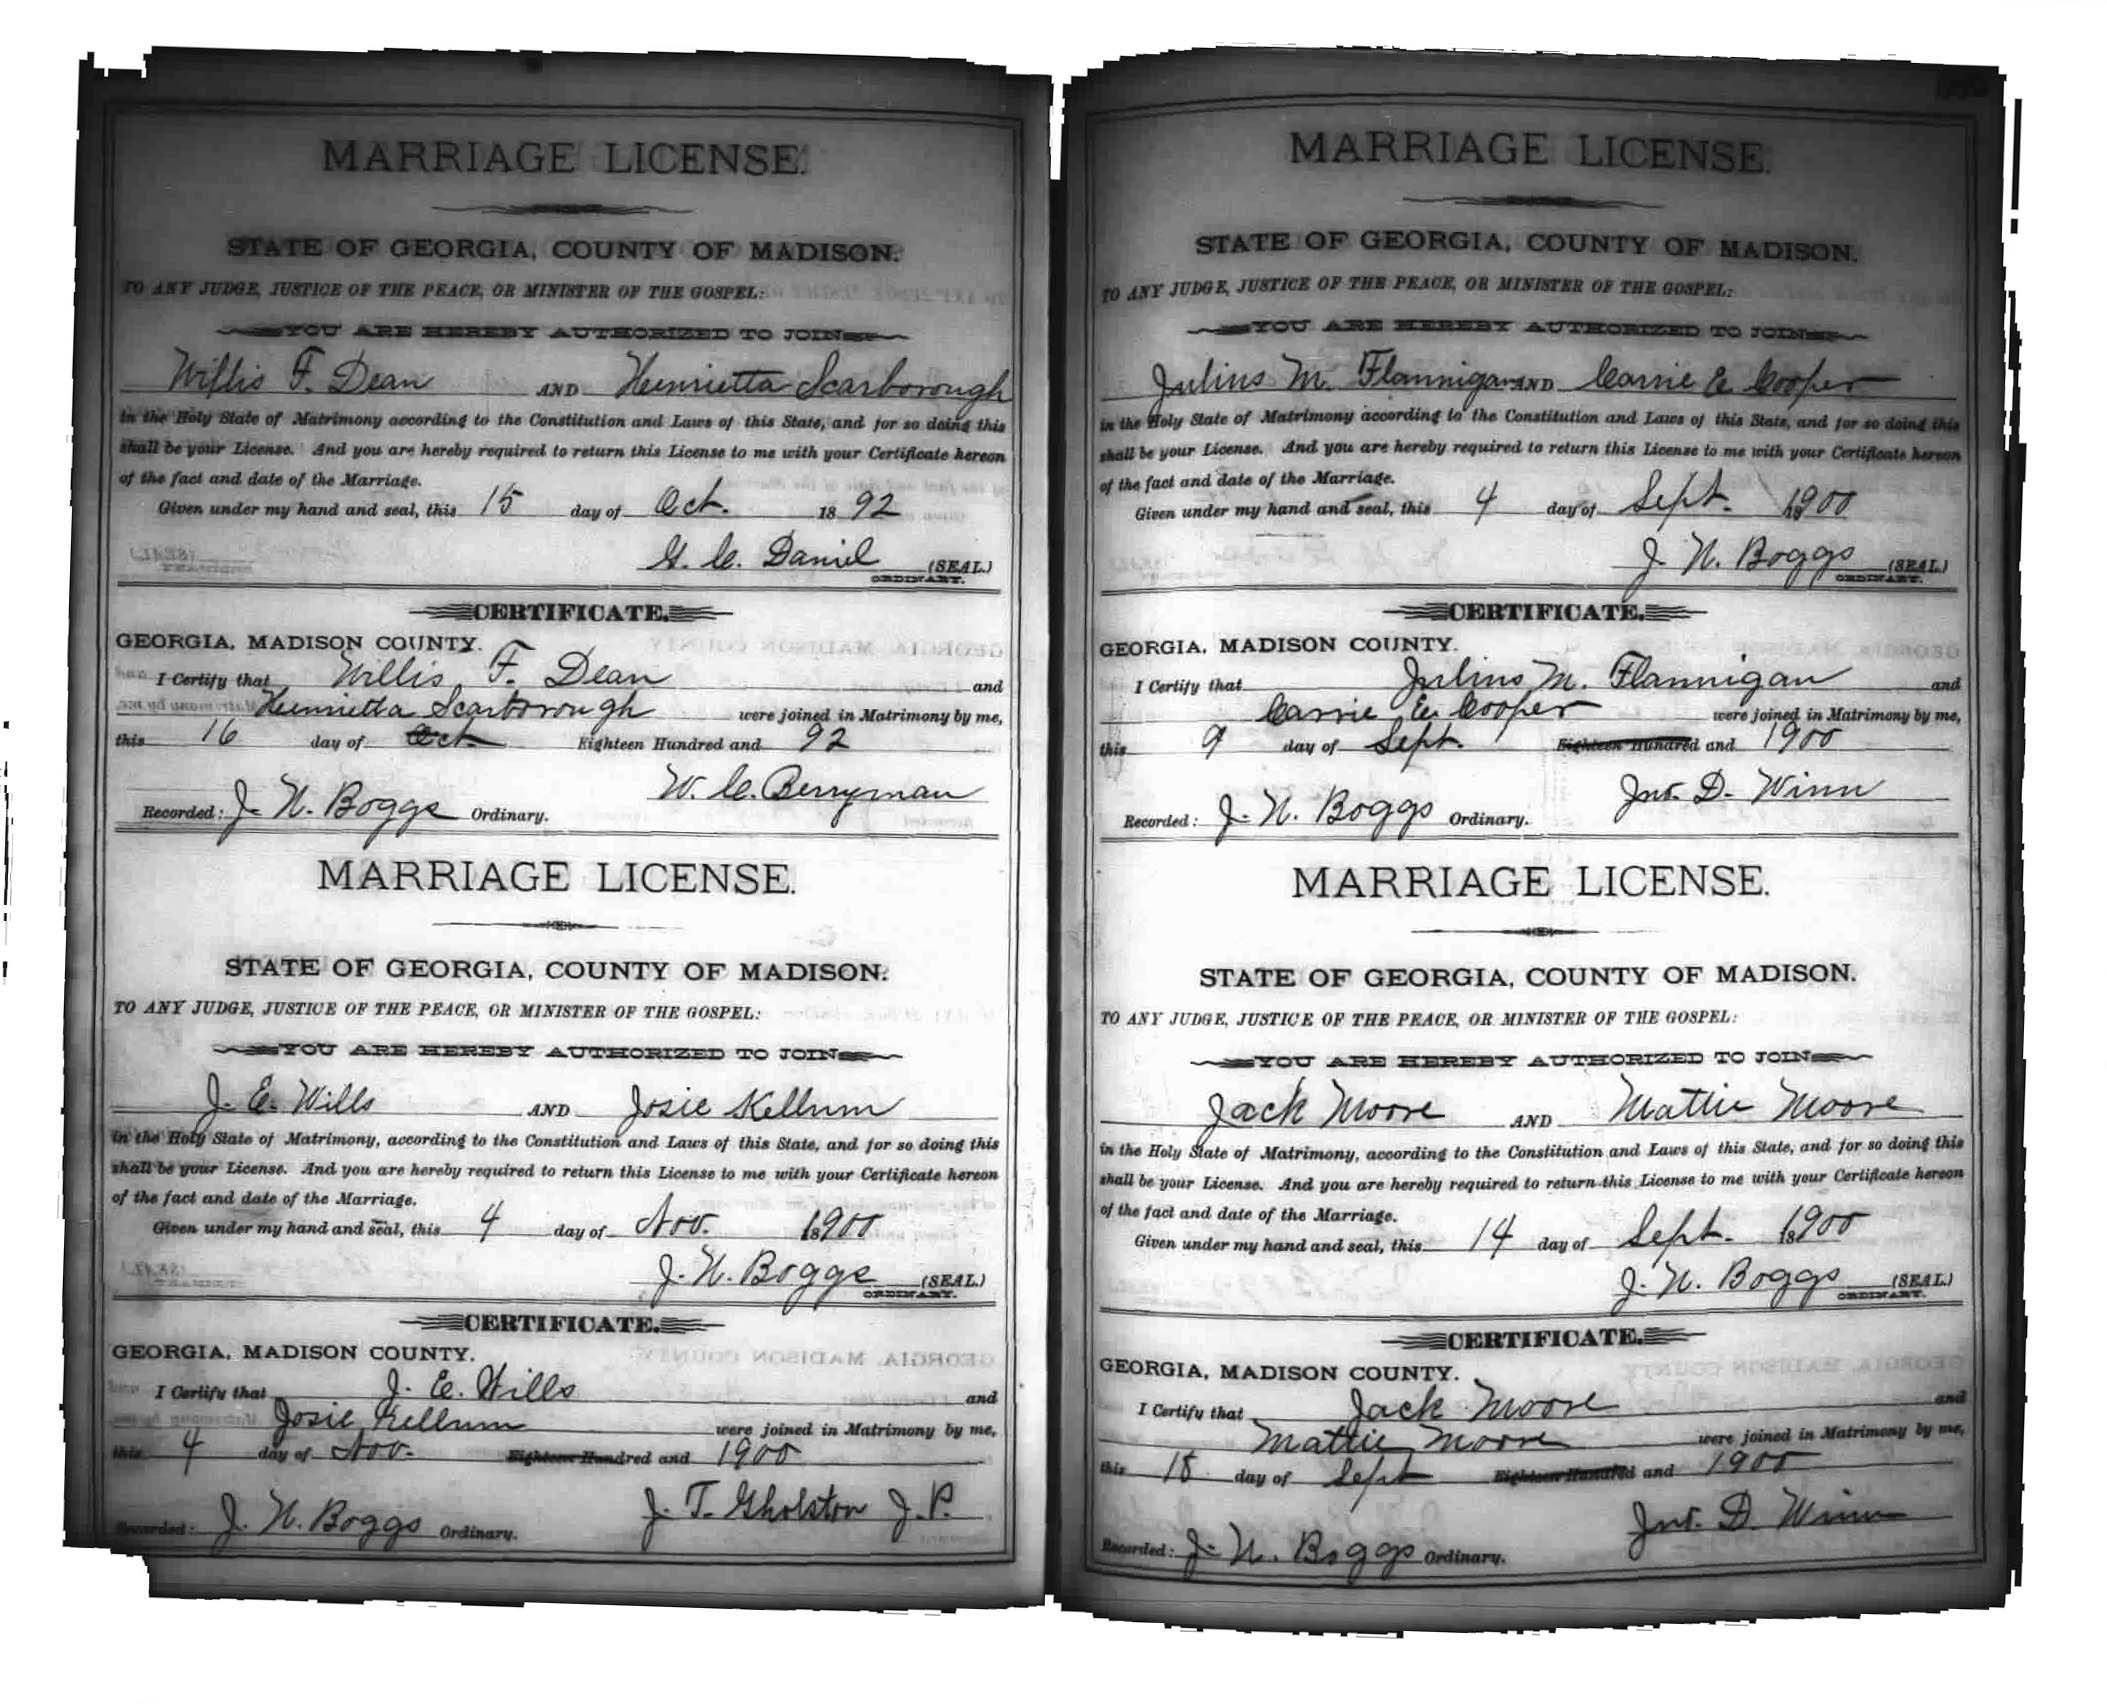 MARRIAGE LICENSE.
STATE OF GEORGIA, COUNTY OF MADISON.
TO ANY JUDGE, JUSTICE OF THE PEACE, OR MINISTER OF THE GOSPEL:
YOU ARE HEREBY AUTHORIZED TO JOIN
Willis F. Dean AND Henrietta Scarborough
in the Holy State of Matrimony according to the Constitution and Laws of this State, and for so doing this
shall be your License. And you are hereby required to return this License to me with your Certificate hereon
of the fact and date of the Marriage.
Given under my hand and seal, this 15 day of Oct. 1892
G. C. Daniel (SEAL)
ORDINARY.
CERTIFICATE.
GEORGIA, MADISON COUNTY.
I Certify that Willis F. Dean and
Henrietta Scarborough were joined in Matrimony by me,
this 16 day of Oct. Eighteen Hundred and 92
W. C. Berryman
Recorded: J. N. Boggs Ordinary.
MARRIAGE LICENSE.
STATE OF GEORGIA, COUNTY OF MADISON.
TO ANY JUDGE, JUSTICE OF THE PEACE, OR MINISTER OF THE GOSPEL:
YOU ARE HEREBY AUTHORIZED TO JOIN
J. E. Wills AND Josie Kellum
in the Holy State of Matrimony, according to the Constitution and Laws of this State, and for so doing this
shall be your License. And you are hereby required to return this License to me with your Certificate hereon
of the fact and date of the Marriage.
Given under my hand and seal, this 4 day of Nov. 1900
J. N. Boggs (SEAL)
ORDINARY.
CERTIFICATE.
GEORGIA, MADISON COUNTY.
I Certify that J. E. Wills and
Josie Kellum were joined in Matrimony by me,
this 4 day of Nov. Eighteen Hundred and 1900
J. T. Gholston J.P.
Recorded: J. N. Boggs Ordinary.
MARRIAGE LICENSE.
STATE OF GEORGIA, COUNTY OF MADISON.
TO ANY JUDGE, JUSTICE OF THE PEACE, OR MINISTER OF THE GOSPEL:
YOU ARE HEREBY AUTHORIZED TO JOIN
Julius M. Flannigan AND Carrie E. Cooper
in the Holy State of Matrimony according to the Constitution and Laws of this State, and for so doing this
shall be your License. And you are hereby required to return this License to me with your Certificate hereon
of the fact and date of the Marriage.
Given under my hand and seal, this 4 day of Sept. 1900
J. N. Boggs (SEAL)
ORDINARY.
CERTIFICATE.
GEORGIA, MADISON COUNTY.
I Certify that Julius M. Flannigan and
Carrie E. Cooper were joined in Matrimony by me,
this 9 day of Sept. Eighteen Hundred and 1900
Jno. D. Winn
Recorded: J. N. Boggs Ordinary.
MARRIAGE LICENSE.
STATE OF GEORGIA, COUNTY OF MADISON.
TO ANY JUDGE, JUSTICE OF THE PEACE, OR MINISTER OF THE GOSPEL:
YOU ARE HEREBY AUTHORIZED TO JOIN
Jack Moore AND Mattie Moore
in the Holy State of Matrimony, according to the Constitution and Laws of this State, and for so doing this
shall be your License. And you are hereby required to return this License to me with your Certificate hereon
of the fact and date of the Marriage.
Given under my hand and seal, this 14 day of Sept. 1900
J. N. Boggs (SEAL)
ORDINARY.
CERTIFICATE.
GEORGIA, MADISON COUNTY.
I Certify that Jack Moore and
Mattie Moore were joined in Matrimony by me,
this 15 day of Sept Eighteen Hundred and 1900
Jno. D. Winn
Recorded: J. N. Boggs Ordinary.